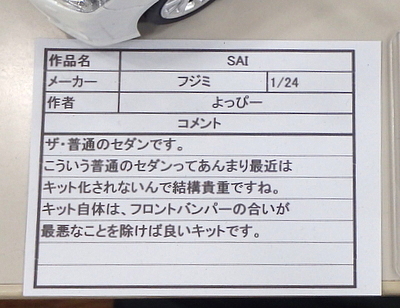 作品名 SAI
メーカー フジミ 1/24
作者 よっぴー
コメント
ザ・普通のセダンです。
こういう普通のセダンってあんまり最近は
キット化されないんで結構貴重ですね。
キット自体は、フロントバンパーの合いが
最悪なことを除けば良いキットです。